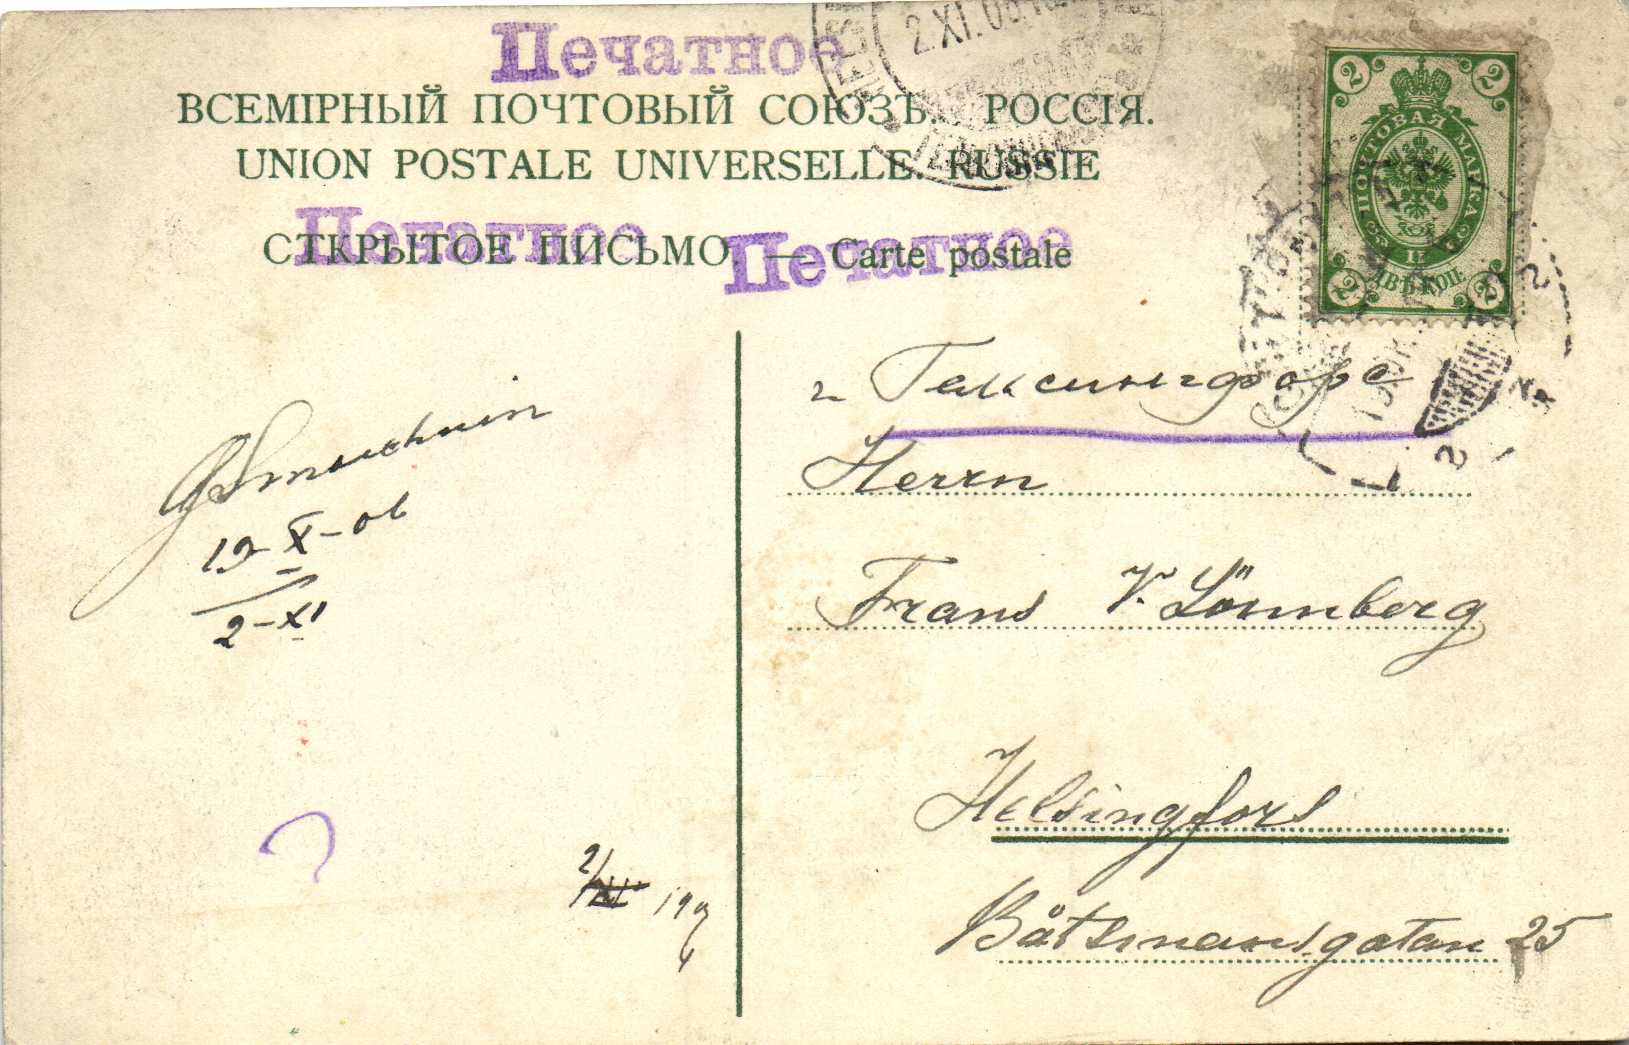 Печатное
2.XI.06
ВСЕМІРНЫЙ ПОЧТОВЫЙ СОЮЗЪ. РОССІЯ.
UNION POSTALE UNIVERSELLE. RUSSIE
Печатное Печатное
ОТКРЫТОЕ ПИСЬМО — Carte postale
2 2
ПОЧТОВАЯ МАРКА
ДВѢ КОП.
2 2
г Гельсингфорс
Herrn
Frans V. Lönnberg
Helsingfors
Båtsmansgatan 25
19-X-06
2-XI
2/XI 190